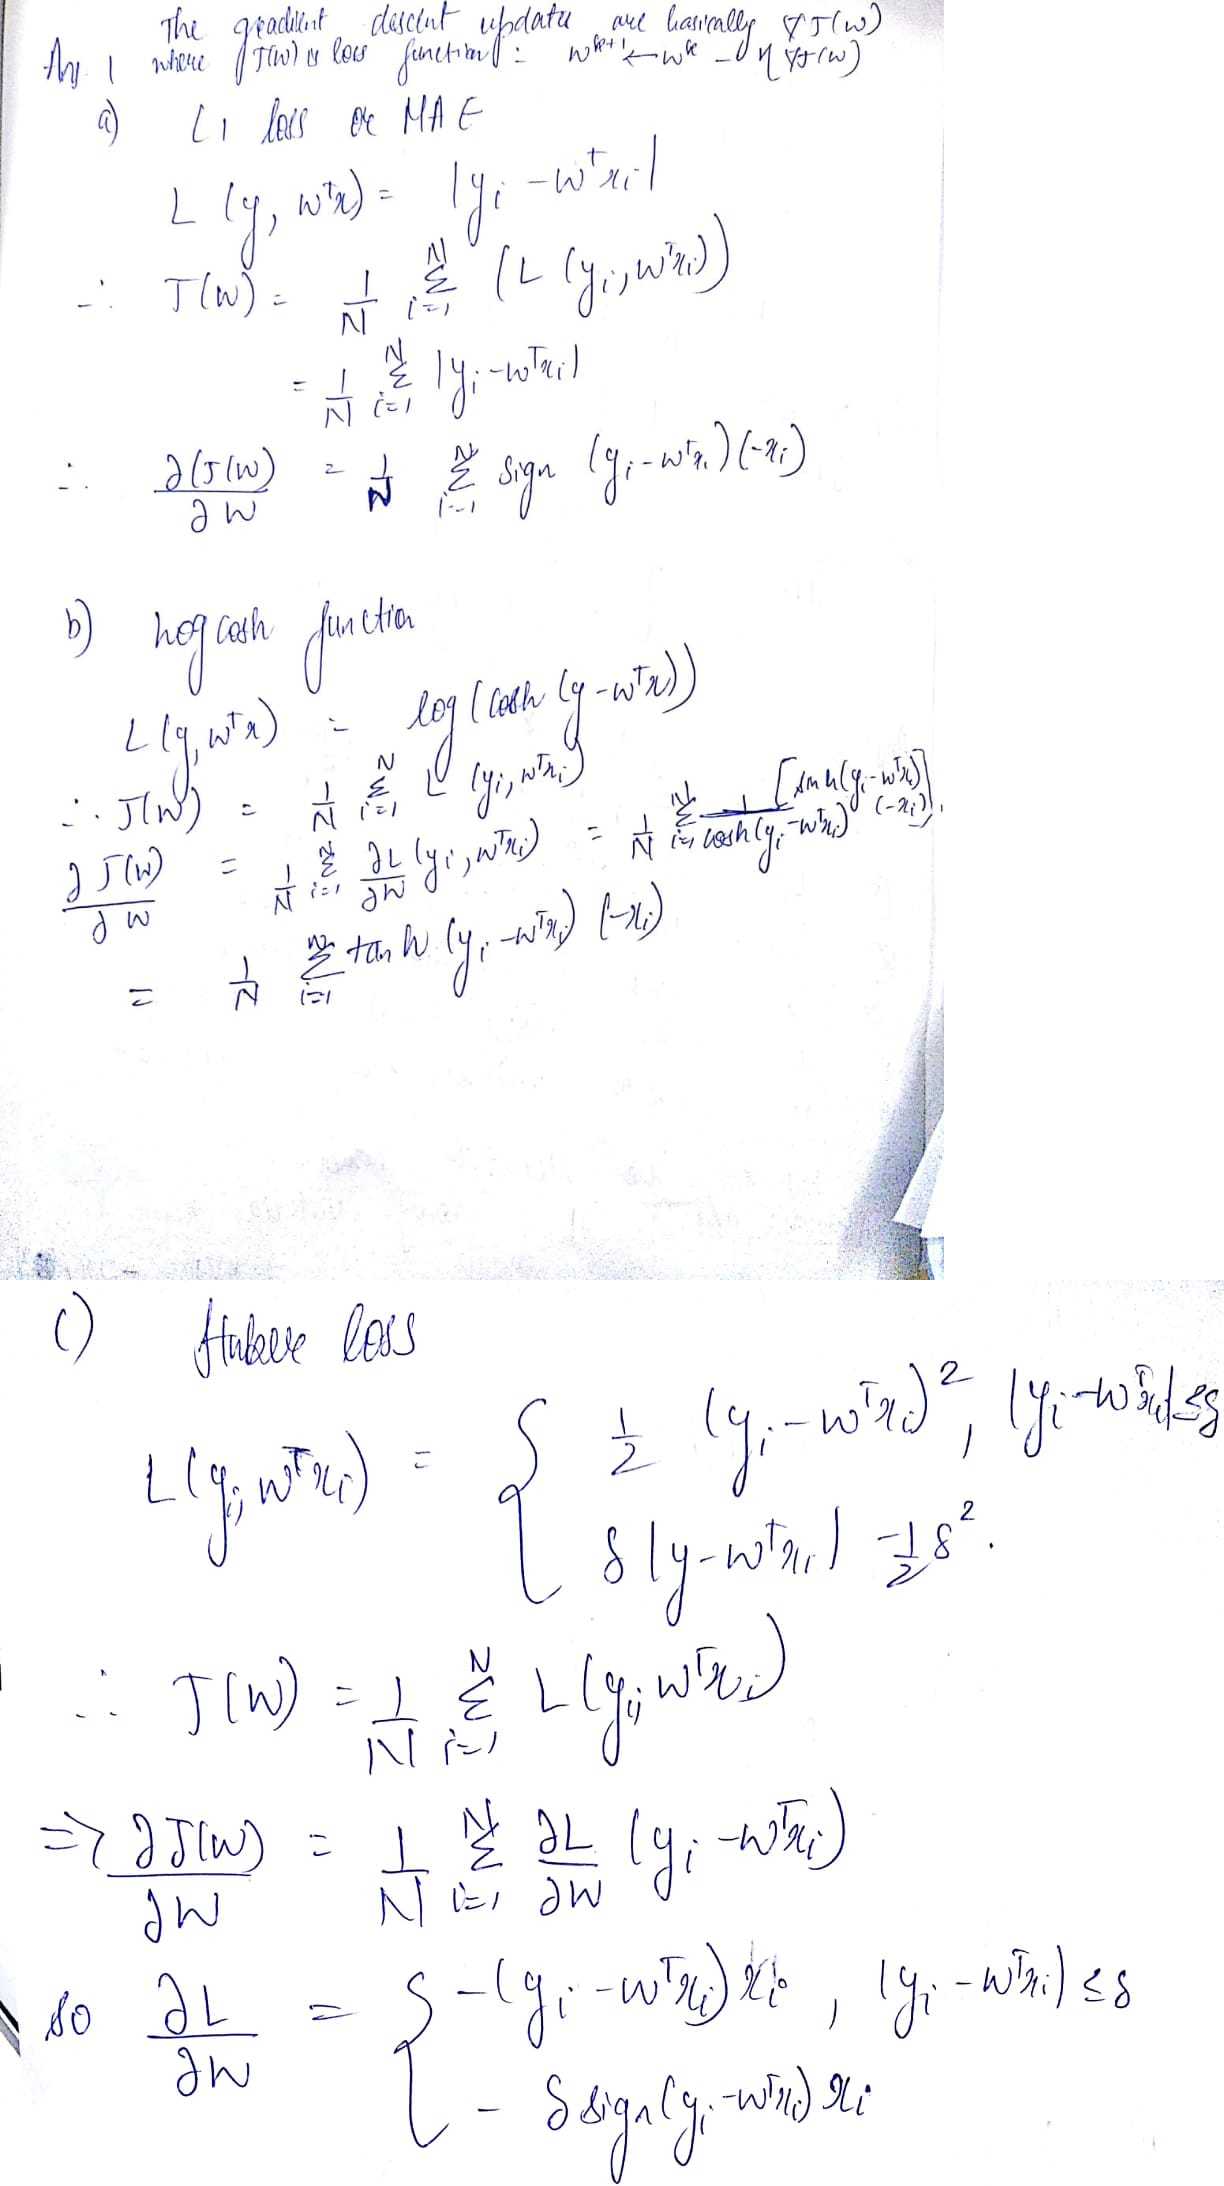 The gradient descent update are basically ∇J(w)
Ans 1 where J(w) is loss function: w^{k+1} ← w^k - η ∇J(w)
a) L1 loss or MAE
L(y, wᵀx) = |yᵢ - wᵀxᵢ|
∴ J(w) = 1/N Σ_{i=1}^{N} (L(yᵢ, wᵀxᵢ))
= 1/N Σ_{i=1}^{N} |yᵢ - wᵀxᵢ|
∴ ∂(J(w)/∂w = 1/N Σ_{i=1}^{N} sign (yᵢ - wᵀxᵢ)(-xᵢ)
b) Log cosh function
L(y, wᵀx) = log(cosh(y - wᵀx))
∴ J(w) = 1/N Σ_{i=1}^{N} L(yᵢ, wᵀxᵢ)
∂J(w)/∂w = 1/N Σ_{i=1}^{N} ∂L/∂w (yᵢ, wᵀxᵢ) = 1/N Σ_{i=1}^{N} 1/cosh(yᵢ - wᵀxᵢ) [sinh(yᵢ - wᵀxᵢ)] (-xᵢ)
= 1/N Σ_{i=1}^{N} tanh (yᵢ - wᵀxᵢ) (-xᵢ)
c) Huber loss
L(yᵢ, wᵀxᵢ) = { 1/2 (yᵢ - wᵀxᵢ)², |yᵢ - wᵀxᵢ| ≤ δ
δ|y - wᵀxᵢ| - 1/2 δ².
∴ J(w) = 1/N Σ_{i=1}^{N} L(yᵢ, wᵀxᵢ)
=> ∂J(w)/∂w = 1/N Σ_{i=1}^{N} ∂L/∂w (yᵢ - wᵀxᵢ)
so ∂L/∂w = { -(yᵢ - wᵀxᵢ) xᵢ, |yᵢ - wᵀxᵢ| ≤ δ
- δ sign(yᵢ - wᵀxᵢ) xᵢ